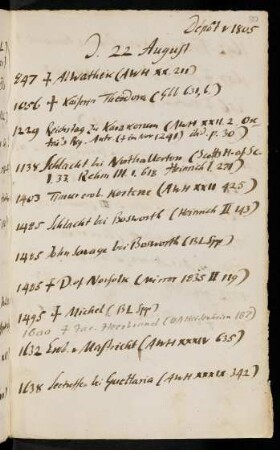 Depôt v 1805
D. 22 August
847 † Al Wathek (AWH XX. 211)
1056 † Kaiserin Theodora (Gll 631, 6)
1229 Reichstag zu Karakorum (AWH XXII. 2. Ok-
tai's Reg. Antr († in ter 1241) ibid. p. 30)
1138 Schlacht bei Northallerton (Scotts H. of Sc.
I. 33. Rehm III. 1. 618 Heinrich I. 271)
1403 Timur erob. (AWH XXII 425)
1485 Schlacht bei Bosworth (Heinrich II 143)
1485 John Savage bei Bosworth (BL Spp)
1485 † D. of Norfolk (Mirror 1835 II 119)
1495 † Michel (BL Spp)
1632 Erob. v Mastricht (AWH XXXIV 635)
1638 Seetreffen bei Guettaria (AWH XXXIX 342)